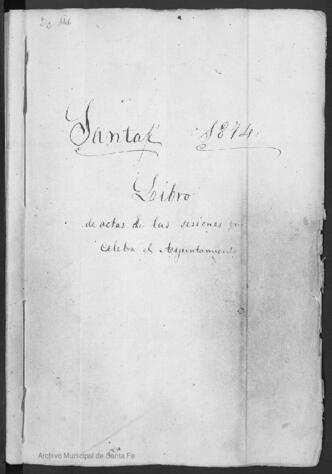 Santafé 1874.
Libro
de actas de las sesiones que
celebra el Ayuntamiento
Archivo Municipal de Santa Fe